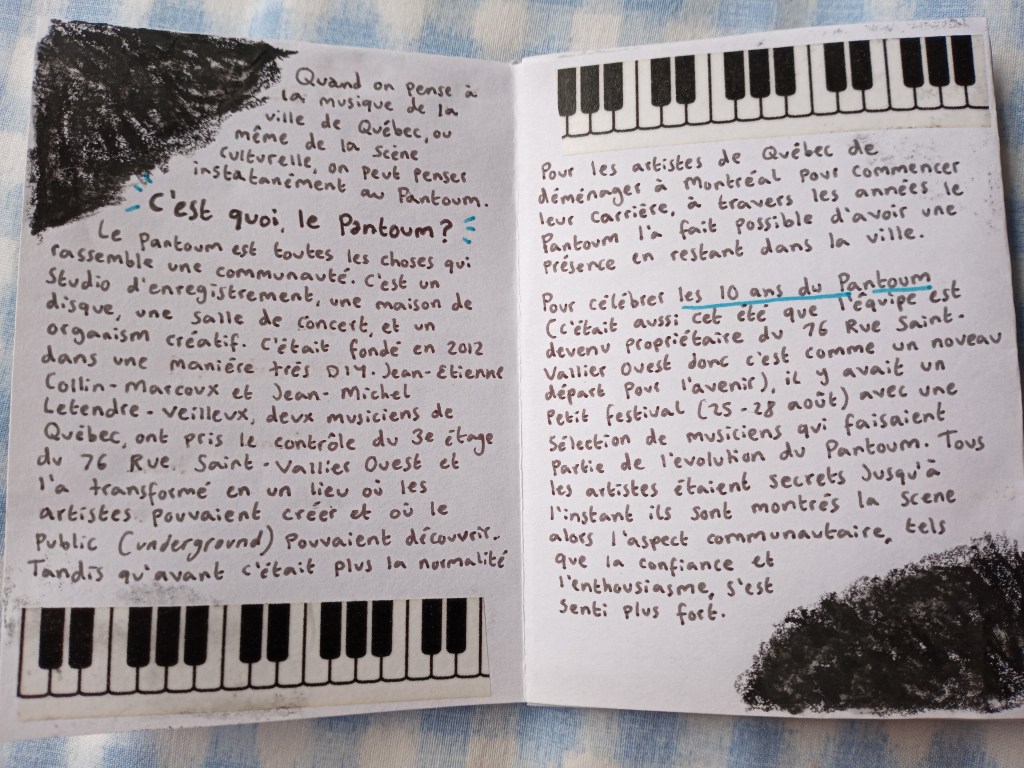 Quand on pense à
la musique de la
ville de Québec, ou
même de la scène
culturelle, on peut penser
instatanément au Pantoum.
C'est quoi, le Pantoum?
Le Pantoum est toutes les choses qui
rassemble une communauté. C'est un
Studio d'enregistrement, une maison de
disque, une salle de concert, et un
organism créatif. C'était fondé en 2012
dans une maniére trés DIY. Jean-Etienne
Collin-Marcoux et Jean-Michel
Letendre-Veilleux, deux musiciens de
Québec, ont pris le contrôle du 3e étage
du 76 Rue Saint-Vallier Ouest et
l'a transformé en un lieu où les
artistes pouvaient créer et où le
Public (underground) Pouvaient découvrir.
Tandis qu'avant c'était plus la normalité
Pour les artistes de Québec de
déménager à Montréal pour commencer
leur carrière, à travers les années le
Pantoum l'a fait possible d'avoir une
présence en restant dans la ville.
Pour célébrer les 10 ans du Pantoum
(c'était aussi cet été que l'équipe est
devenu propriétaire du 76 Rue Saint-
Vallier Ouest donc c'est comme un noveau
départ pour l'avenir), il y avait un
Petit festival (25-28 août) avec une
Sélection de musiciens qui faisaient
Partie de l'evolution du Pantoum. Tous
les artistes étaient secrets Jusqu'à
l'instant ils sont montrés la scene
alors l'aspect communautaire, tels
que la confiance et
l'enthousiasme, s'est
Senti plus fort.